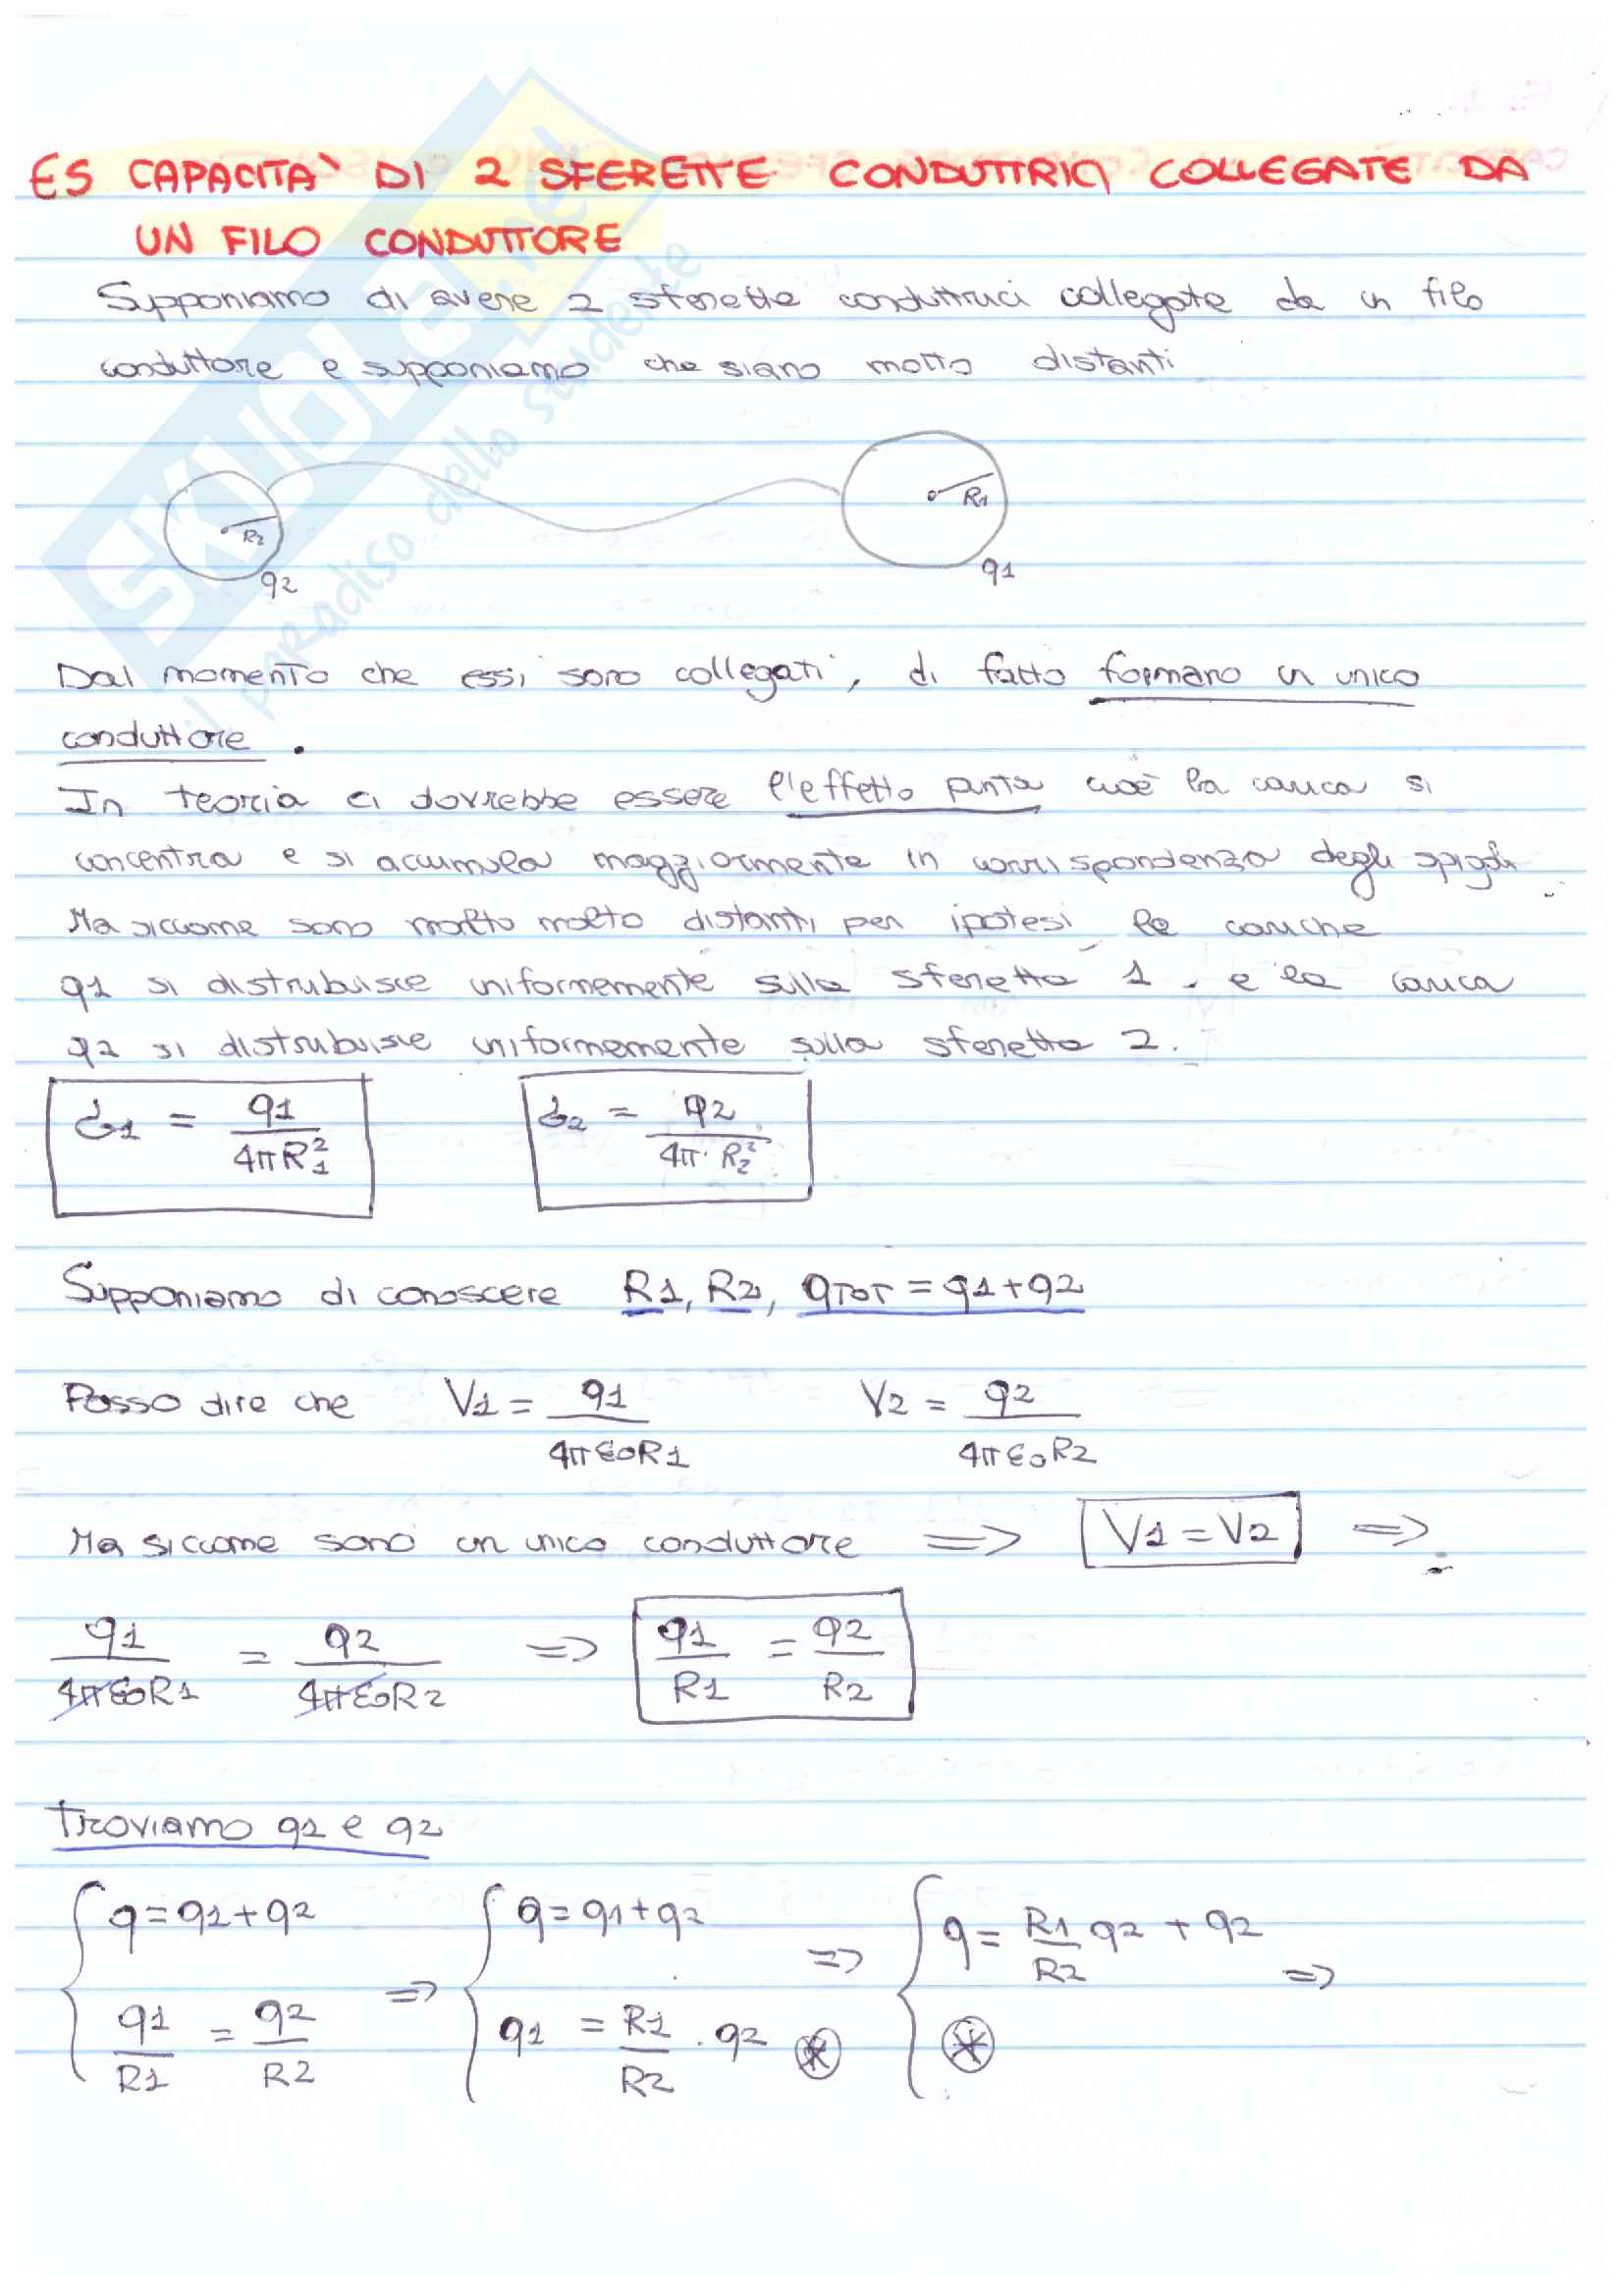 ES CAPACITÀ DI 2 SFERETTE CONDUTTRICI COLLEGATE DA
UN FILO CONDUTTORE
Supponiamo di avere 2 sferette conduttrici collegate da un filo
conduttore e supponiamo che siano molto distanti
R2
q2
R1
q1
Dal momento che essi sono collegati, di fatto formano un unico
conduttore.
In teoria ci dovrebbe essere l'effetto punta cioè la carica si
concentra e si accumula maggiormente in corrispondenza degli spigoli
Ma siccome sono molto molto distanti per ipotesi le cariche
q1 si distribuisce uniformemente sulla sferetta 1, e la carica
q2 si distribuisce uniformemente sulla sferetta 2.
σ1 = q1 / 4πR1² σ2 = q2 / 4π·R2²
Supponiamo di conoscere R1, R2, qTOT = q1+q2
Posso dire che V1 = q1 / 4πε0R1 V2 = q2 / 4πε0R2
Ma siccome sono un unico conduttore => V1 = V2 =>
q1 / 4πε0R1 = q2 / 4πε0R2 => q1 / R1 = q2 / R2
Troviamo q1 e q2
{ q = q1+q2 { q = q1+q2 => { q = R1/R2 q2 + q2 =>
q1/R1 = q2/R2 => q1 = R1/R2 · q2 ⊛ ⊛
SKUOLA.net
il paradiso dello studente